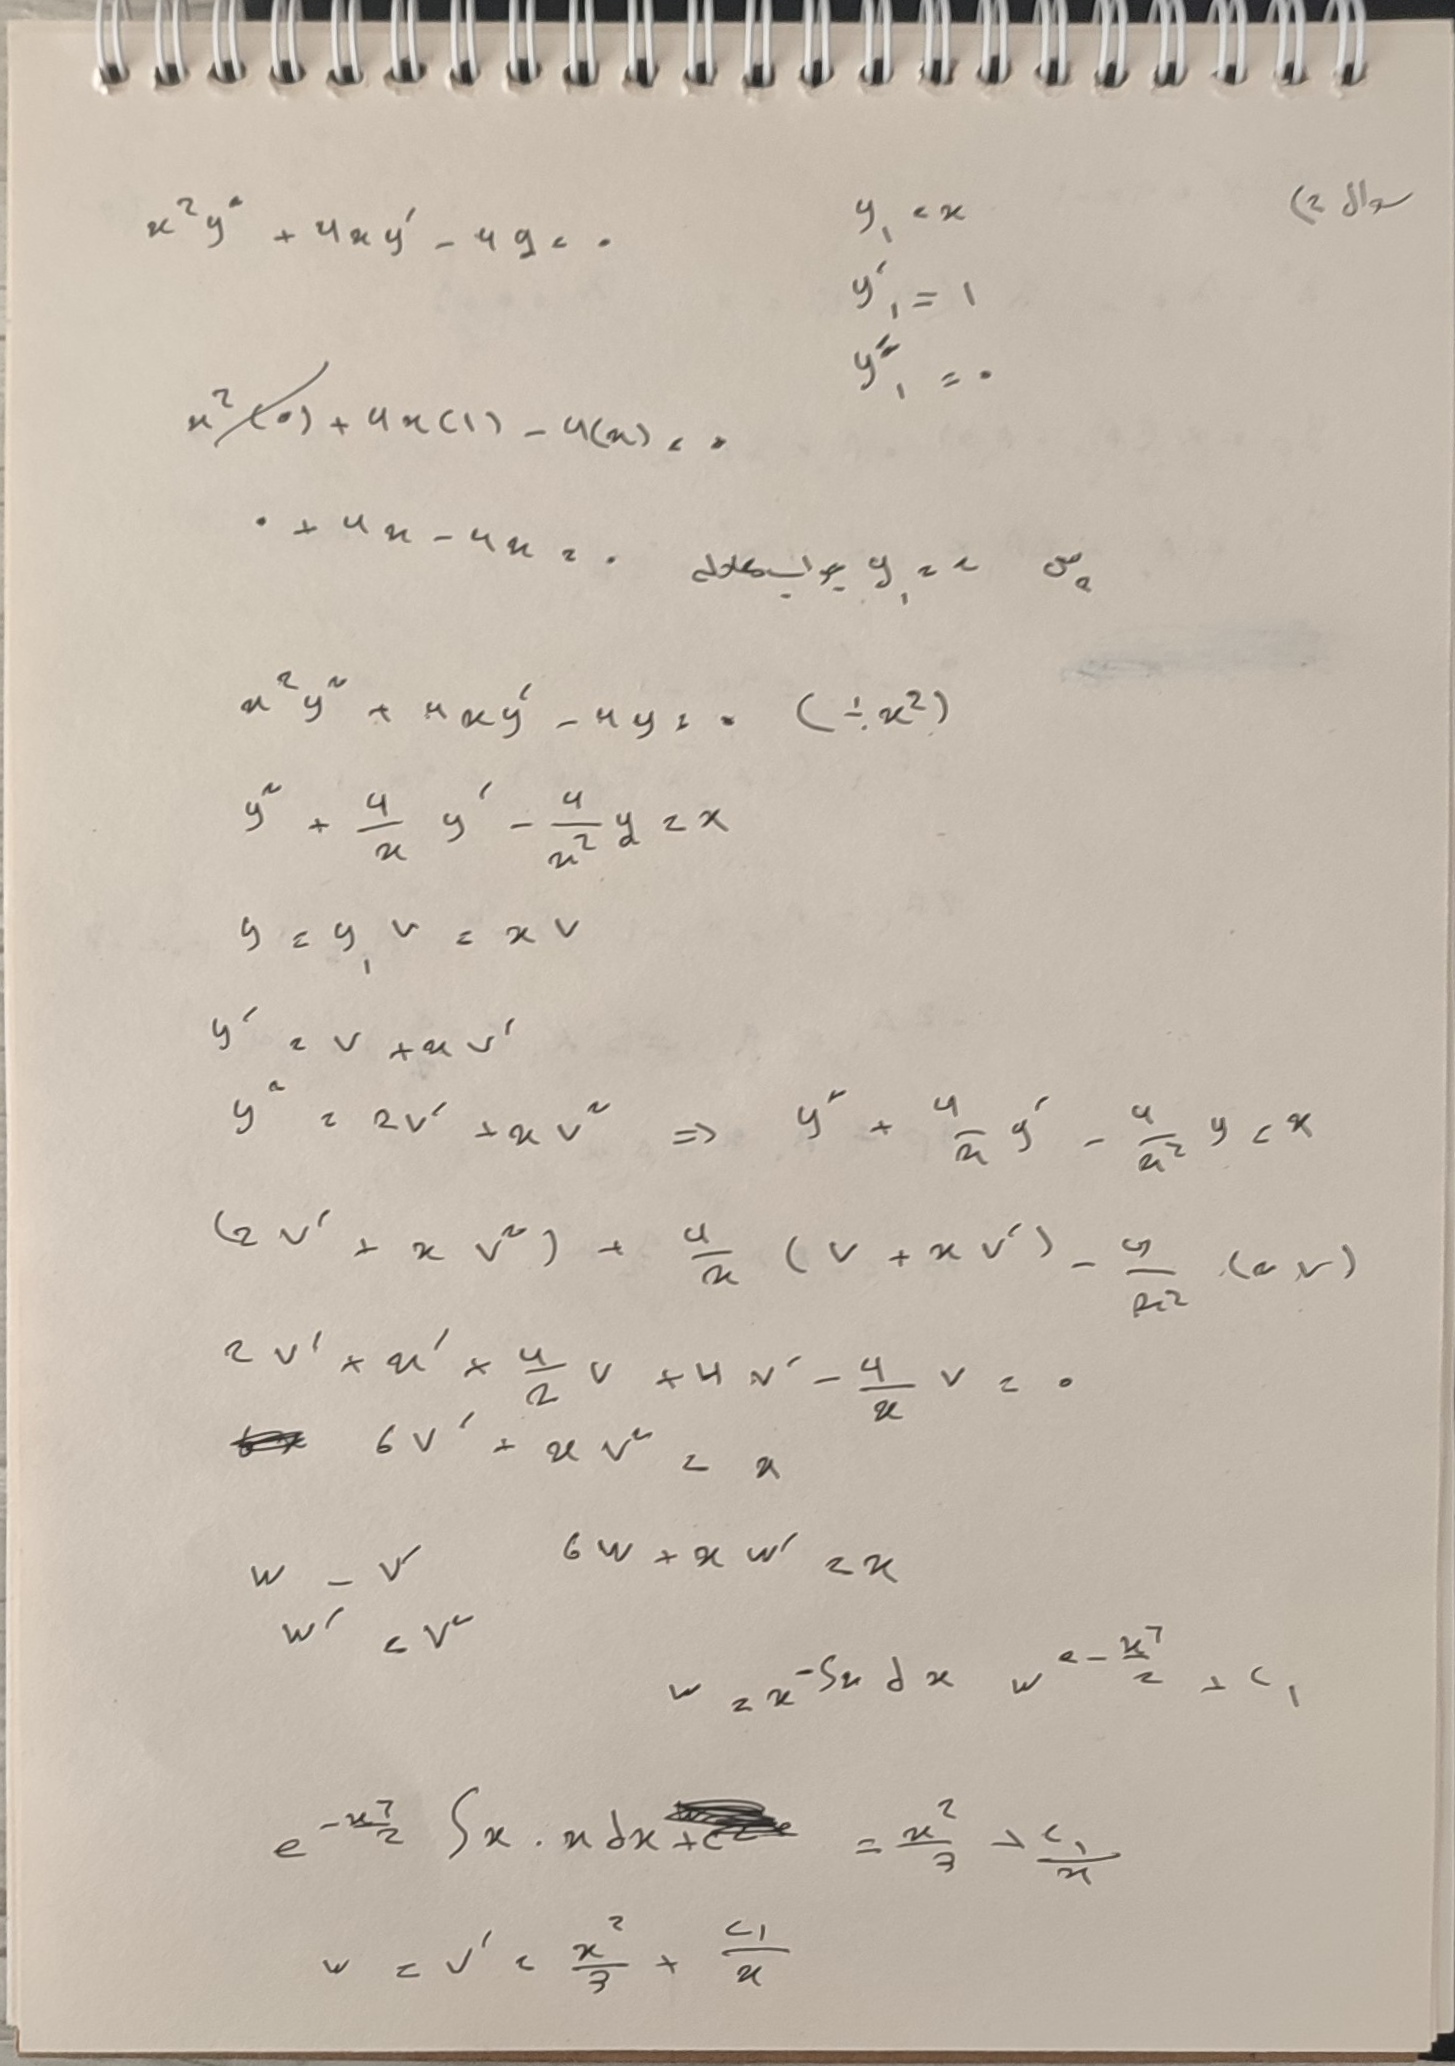 سوال 2)
x²y″ + 4xy′ - 4y = 0
y₁ = x
y′₁ = 1
y″₁ = 0
x²(0) + 4x(1) - 4(x) = 0
0 + 4x - 4x = 0 پس y₁ = x جواب معادله
x²y″ + 4xy′ - 4y = 0 (÷x²)
y″ + 4/x y′ - 4/x² y = x
y = y₁ v = x v
y′ = v + xv′
y″ = 2v′ + xv″ ⇒ y″ + 4/x y′ - 4/x² y = x
(2v′ + x v″) + 4/x (v + x v′) - 4/x² (x v)
2v′ + x′ + 4/2 v + 4v′ - 4/x v = 0
6v′ + x v″ = x
w = v′ 6w + x w′ = x
w′ = v″
w = x^-∫x dx w e^-x²/2 + c₁
e^-x²/2 ∫x . x dx = x²/3 + c₁/x
w = v′ = x²/3 + c₁/x